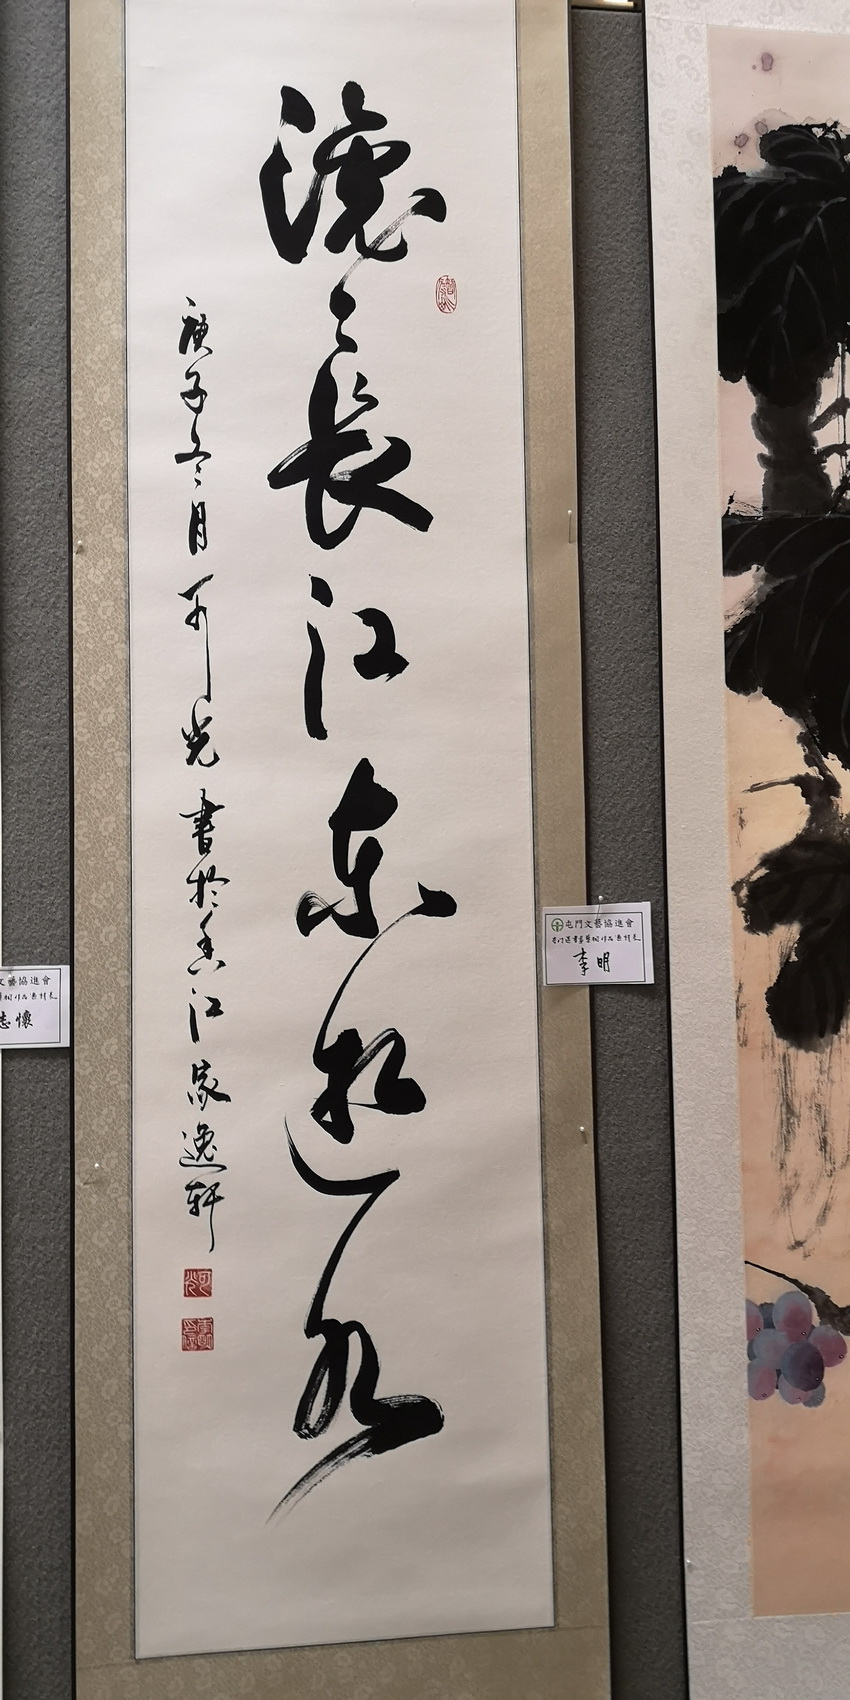 滚〻長江东逝水
庚子冬月可光書於香江家逸軒
可光
屯門文藝協進會
李明
文藝協進會
志懷